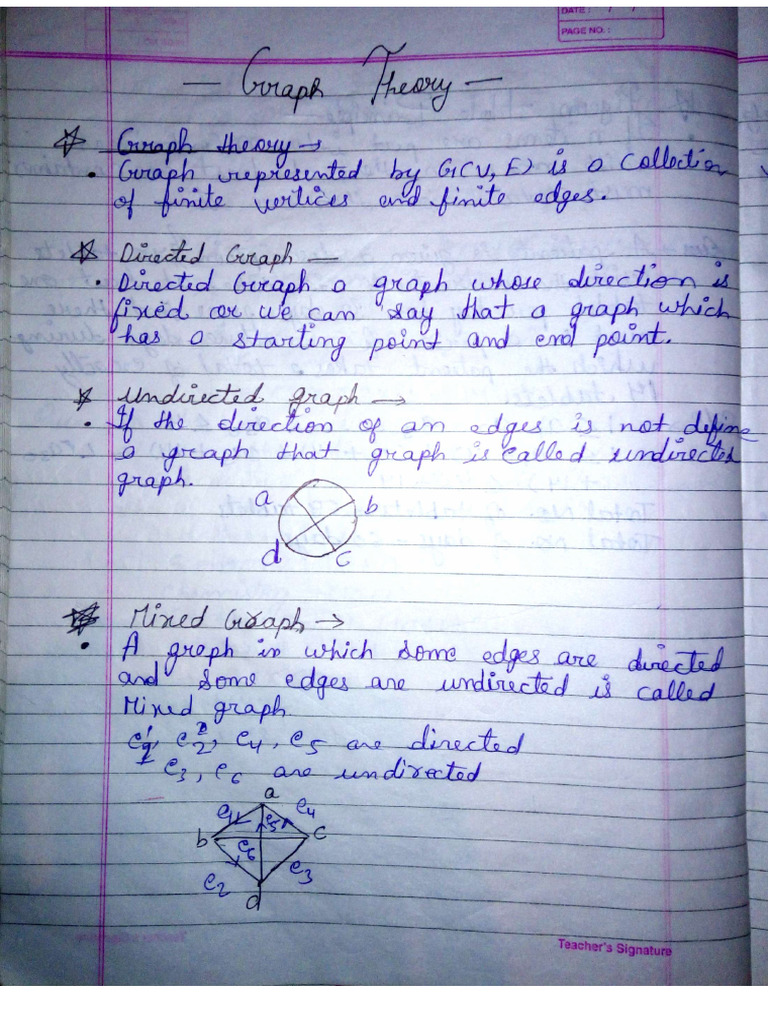 DATE: / /
PAGE NO.:
— Graph Theory —
Graph theory →
• Graph represented by G(V, E) is a collection
of finite vertices and finite edges.
Directed Graph —
• Directed Graph a graph whose direction is
fixed or we can say that a graph which
has a starting point and end point.
Undirected graph →
• If the direction of an edges is not define
a graph that graph is called undirected
graph.
a
b
d
c
Mixed Graph →
• A graph in which some edges are directed
and some edges are undirected is called
Mixed graph.
e1, e2, e4, e5 are directed
e3, e6 are undirected
a
e1
e4
e5
b
c
e6
e2
e3
d
Teacher's Signature